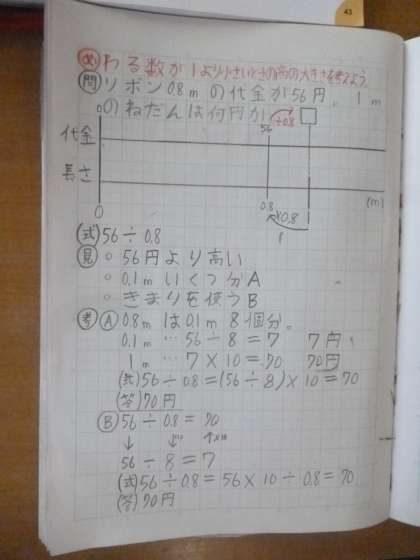 43
め わる数が1より小さいときの商の大きさを考えよう。
問 リボン0.8mの代金が56円。1m
のねだんは何円か
÷0.8
0 56 □
代金
長さ
(m)
0 0.8 1
×0.8
(式) 56÷0.8
見 ○ 56円より高い
○ 0.1mいくつ分A
○ きまりを使うB
考 A 0.8mは0.1m 8個分。
0.1m … 56÷8=7 7円
1m … 7×10=70 70円
(式) 56÷0.8=(56÷8)×10=70
(答) 70円
B 56÷0.8=70
↓ ↓ ↑
56÷8=7
(式) 56÷0.8=56×10÷0.8=70
(答) 70円